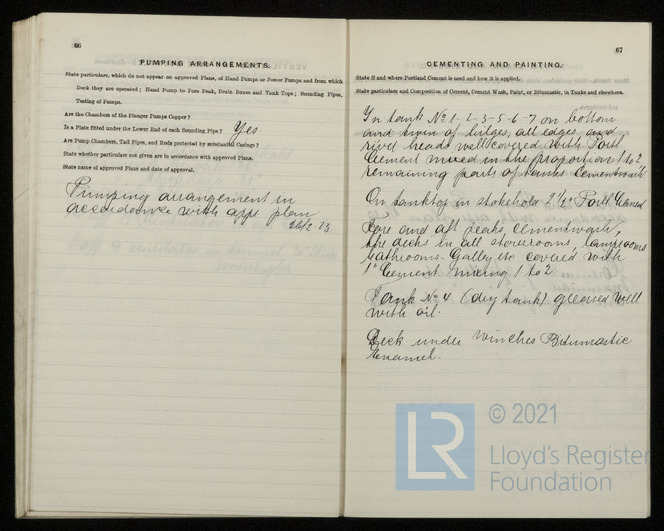 66
PUMPING ARRANGEMENTS.
State particulars, which do not appear on approved Plans, of Hand Pumps or Power Pumps and from which
Deck they are operated; Hand Pump to Fore Peak, Drain Boxes and Tank Tops; Sounding Pipes,
Testing of Pumps.
Are the Chambers of the Plunger Pumps Copper?
Is a Plate fitted under the Lower End of each Sounding Pipe? Yes
Are Pump Chambers, Tail Pipes, and Rods protected by substantial Casings?
State whether particulars not given are in accordance with approved Plans.
State name of approved Plans and date of approval.
Pumping arrangement in
accordance with appd plan
26/2 13
67
CEMENTING AND PAINTING.
State if and where Portland Cement is used and how it is applied.
State particulars and Composition of Cement, Cement Wash, Paint, or Bitumastic, in Tanks and elsewhere.
In tank No 1-2-3-5-6-7 on bottom
and riven of bilges, all edges and
rivet heads well covered with Portl
Cement mixed in the proportion 1 to 2
remaining parts of tanks cementwash
On tanktop in stokehold 2½" Portl Cement
Fore and aft peaks, cementwash,
the decks in all storerooms, lamprooms
bathrooms - Galley etc covered with
1" Cement mixing 1 to 2
Tank No 4 (dry tank) greased well
with oil.
Deck under winches Bitumastic
Enamel.
LR
© 2021
Lloyd's Register
Foundation